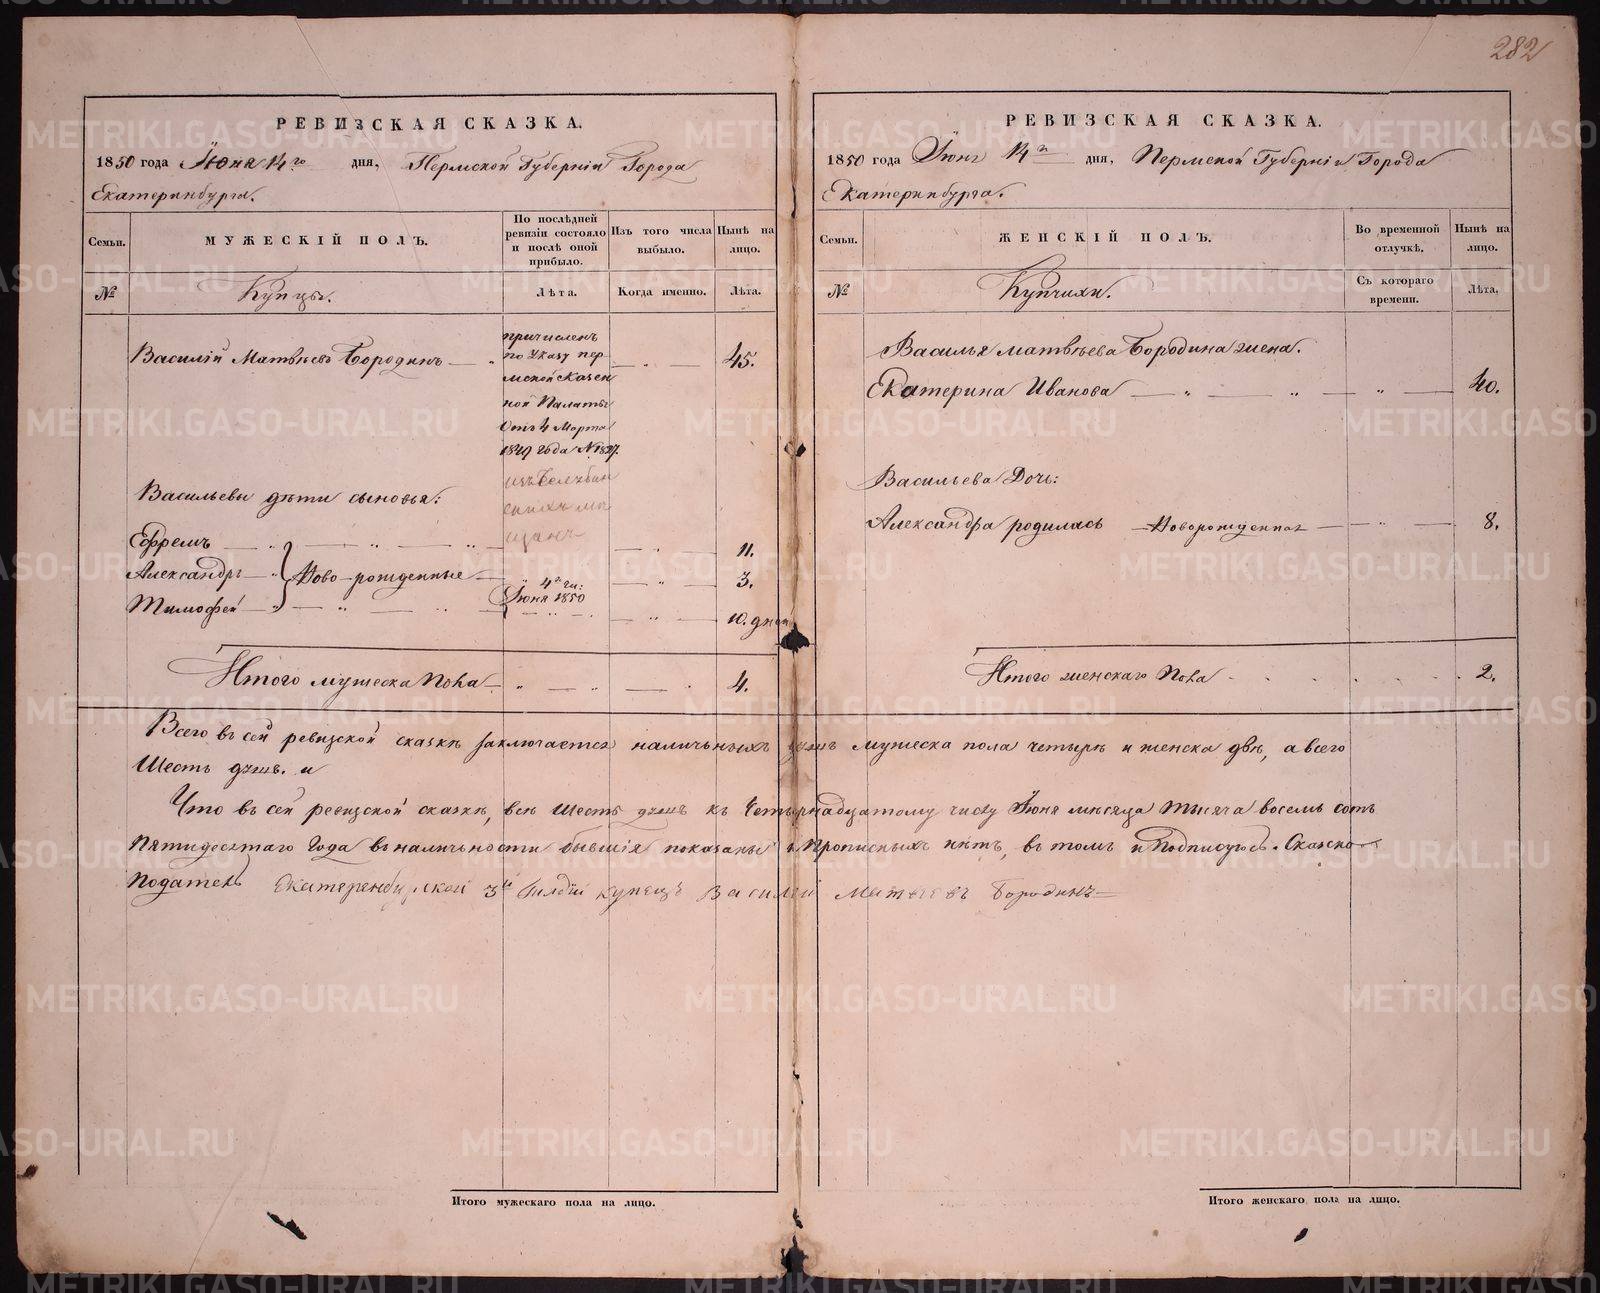 282
РЕВИЗСКАЯ СКАЗКА.
1850 года Іюня 14го дня, Пермской Губерніи Города
Екатеринбурга.
Семьи.
МУЖЕСКІЙ ПОЛЪ.
По послѣдней
ревизіи состояло
и послѣ оной
прибыло.
Изъ того числа
выбыло.
Нынѣ на
лицо.
№
Купцы.
Лѣта.
Когда именно.
Лѣта.
Василій Матвѣевъ Бородинъ
причисленъ
по Указу пер
мской Казен
ной Палаты
Отъ 4 Марта
1849 года № 1827.
45.
изъ
скихъ мѣ
щанъ
Васильевы дѣти сыновья:
Ефремъ 11.
Александръ Ново-рожденные 3.
Тимофей 4го чи: Іюня 1850 10. дней
Итого мужеска пола 4.
РЕВИЗСКАЯ СКАЗКА.
1850 года Іюня 14го дня, Пермской Губерніи Города
Екатеринбурга.
Семьи.
ЖЕНСКІЙ ПОЛЪ.
Во временной
отлучкѣ.
Нынѣ на
лицо.
№
Купчихи.
Съ котораго
времени.
Лѣта.
Василья матвѣева Бородина жена.
Екатерина Иванова 40.
Васильева Дочь:
Александра родилась Новорожденная 8.
Итого женскаго пола 2.
Всего въ сей ревизской сказкѣ заключается наличныхъ душъ мужеска пола четырѣ и женска двѣ, а всего
Шесть душъ. и
Что въ сей ревизской сказкѣ, всѣ шесть душъ къ Четырнадцатому числу Іюня мѣсяца тысяча восемь сотъ
Пятидесятаго Года въ наличности бывшія показаны и Прописныхъ нѣтъ, въ томъ и Подписуюсь. Сказко
Податель Екатеренбурской 3й Гилдіи купецъ Василей Матвѣевъ Бородинъ
Итого мужескаго пола на лицо.
Итого женскаго пола на лицо.
METRIKI.GASO-URAL.RU